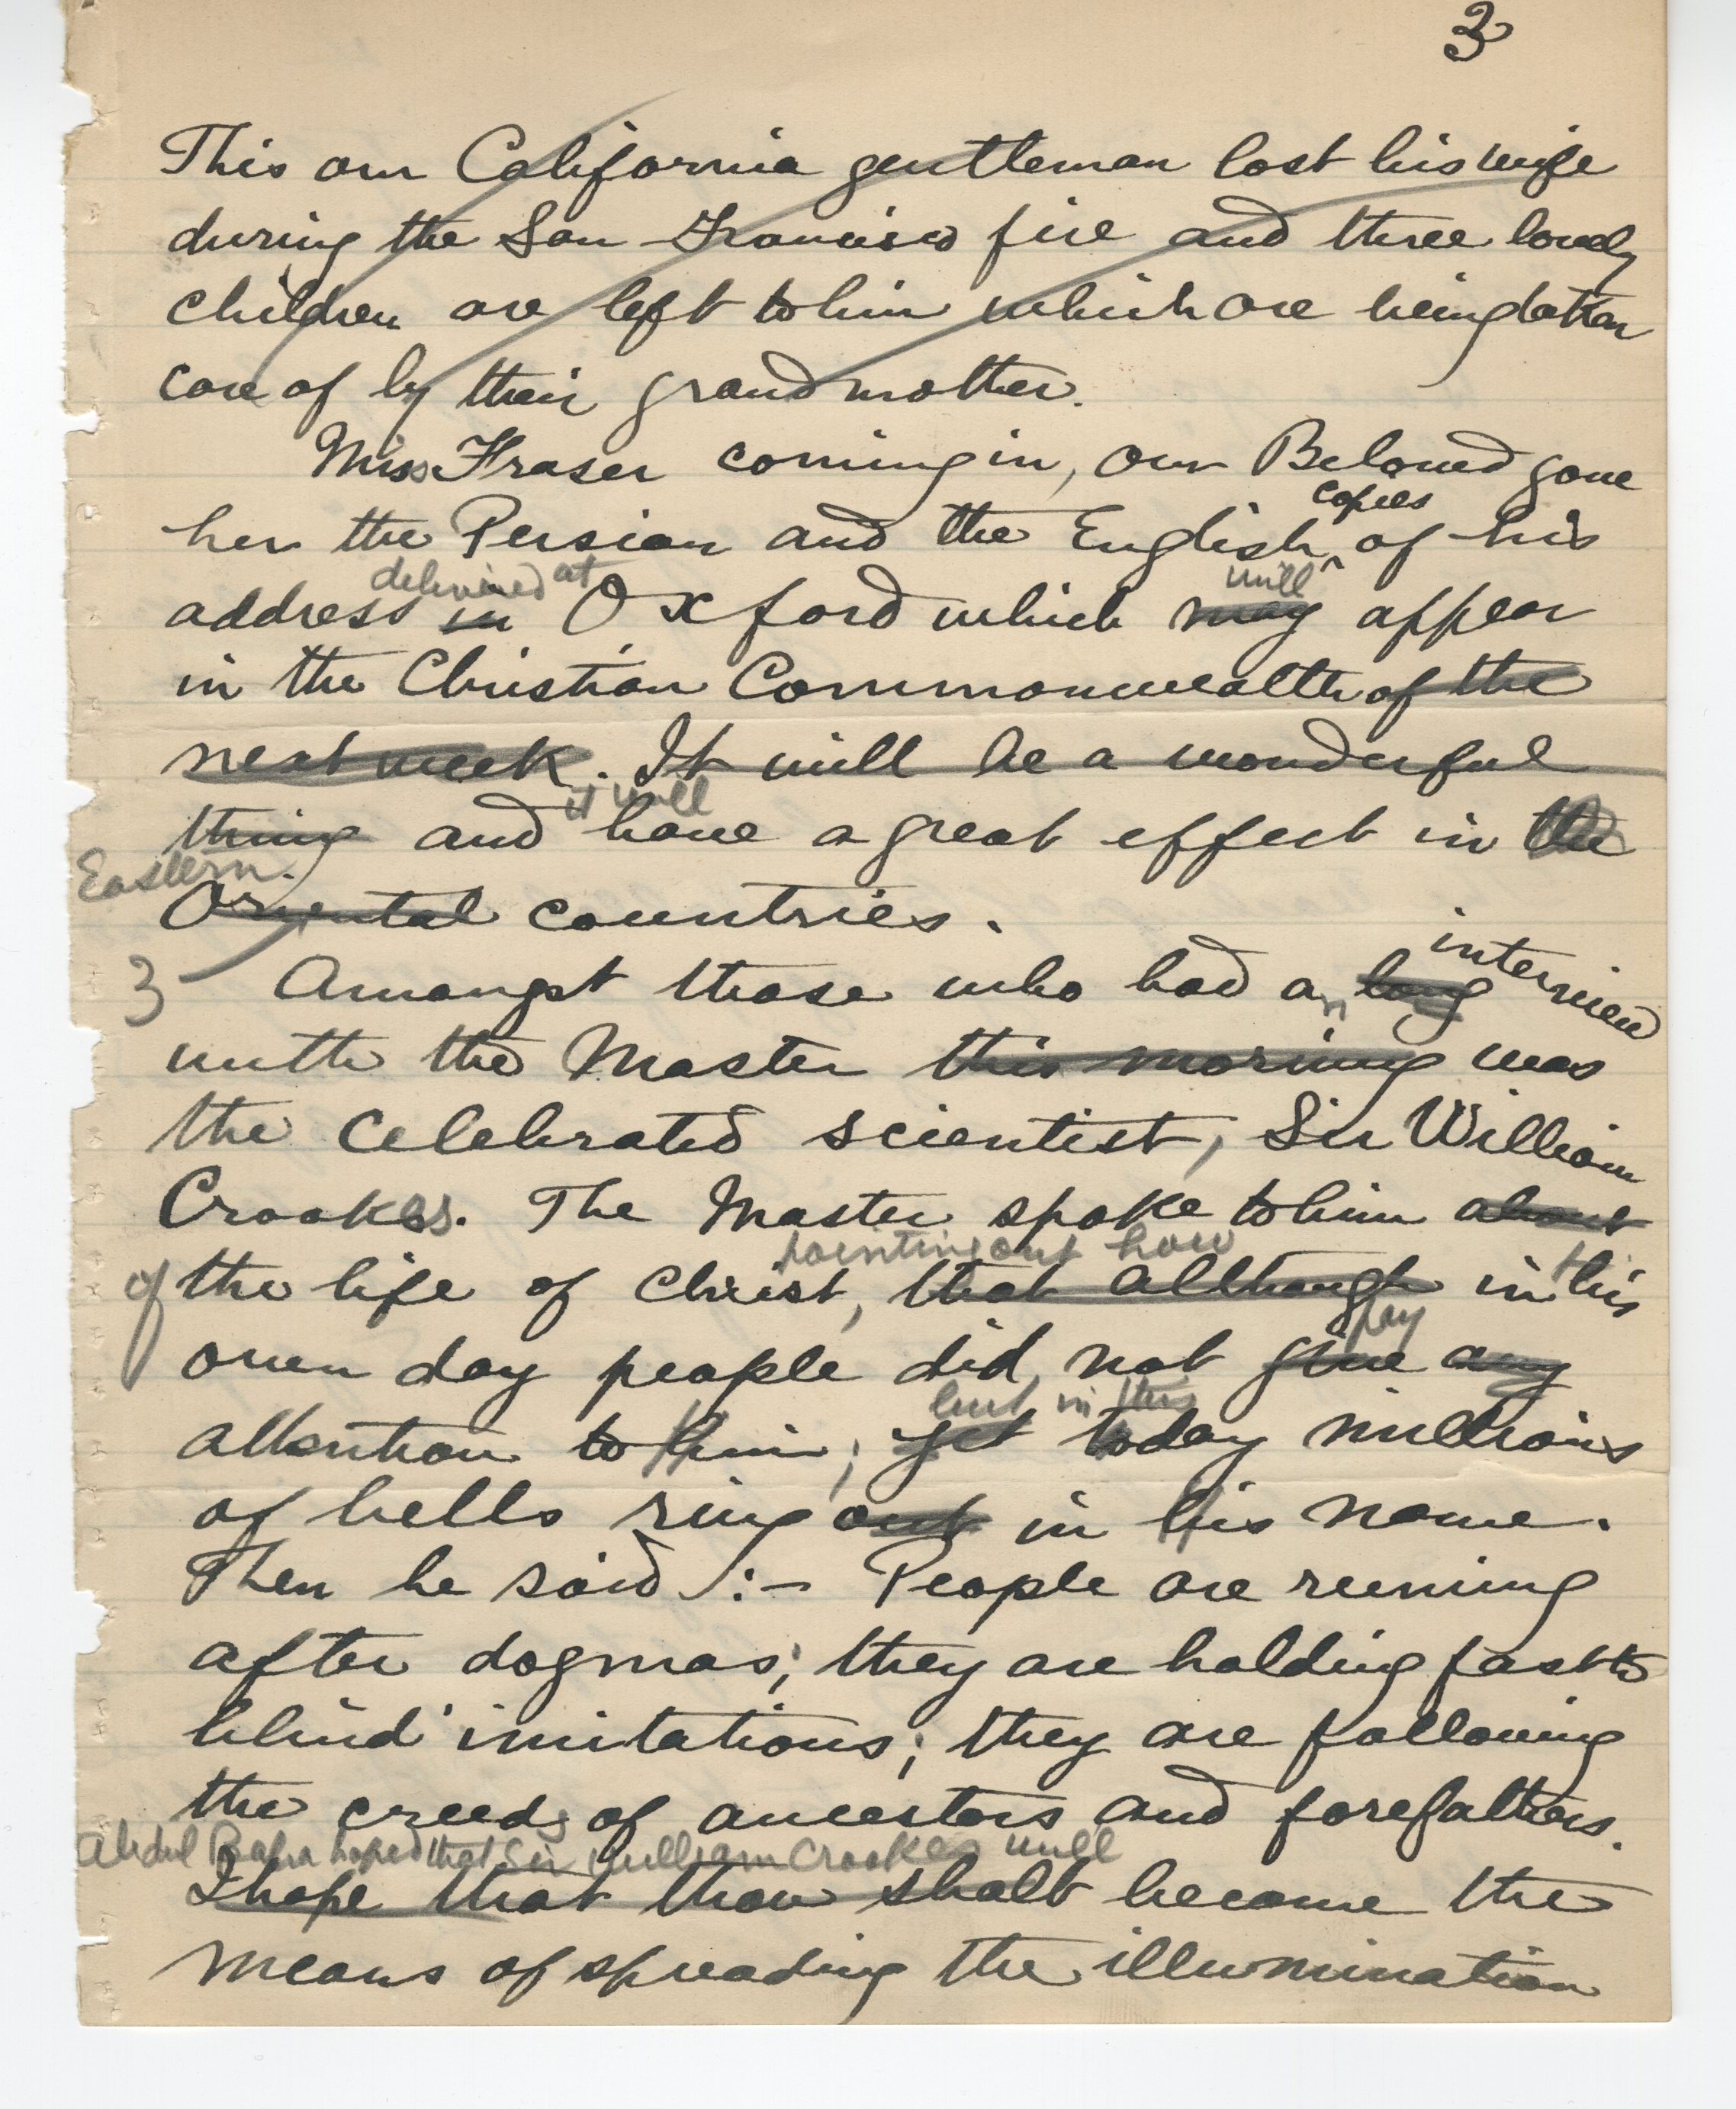 3
This our California gentleman lost his wife
during the San Francisco fire and three lovely
children are left to him which are being taken
care of by their grandmother.
Miss Fraser coming in, our Beloved gave
copies
her the Persian and the English ^ of his
delivered at will
address in Oxford which may appear
in the Christian Commonwealth of the
next week. It will be a wonderful
it will
thing and have a great effect in the
Eastern
Oriental countries.
interview
3 Amongst those who had an long
with the Master this morning was
the celebrated scientist, Sir William
Crookes. The Master spoke to him about
pointing out how
of the life of Christ, that although in His
pay
own day people did not give any
but in this
attention to Him; yet today millions
of bells ring out in His name.
Then he said :- People are running
after dogmas; they are holding fast to
blind imitations; they are following
the creeds of ancestors and forefathers.
Abdul Baha hoped that Sir William Crookes will
I hope that thou shalt become the
means of spreading the illumination